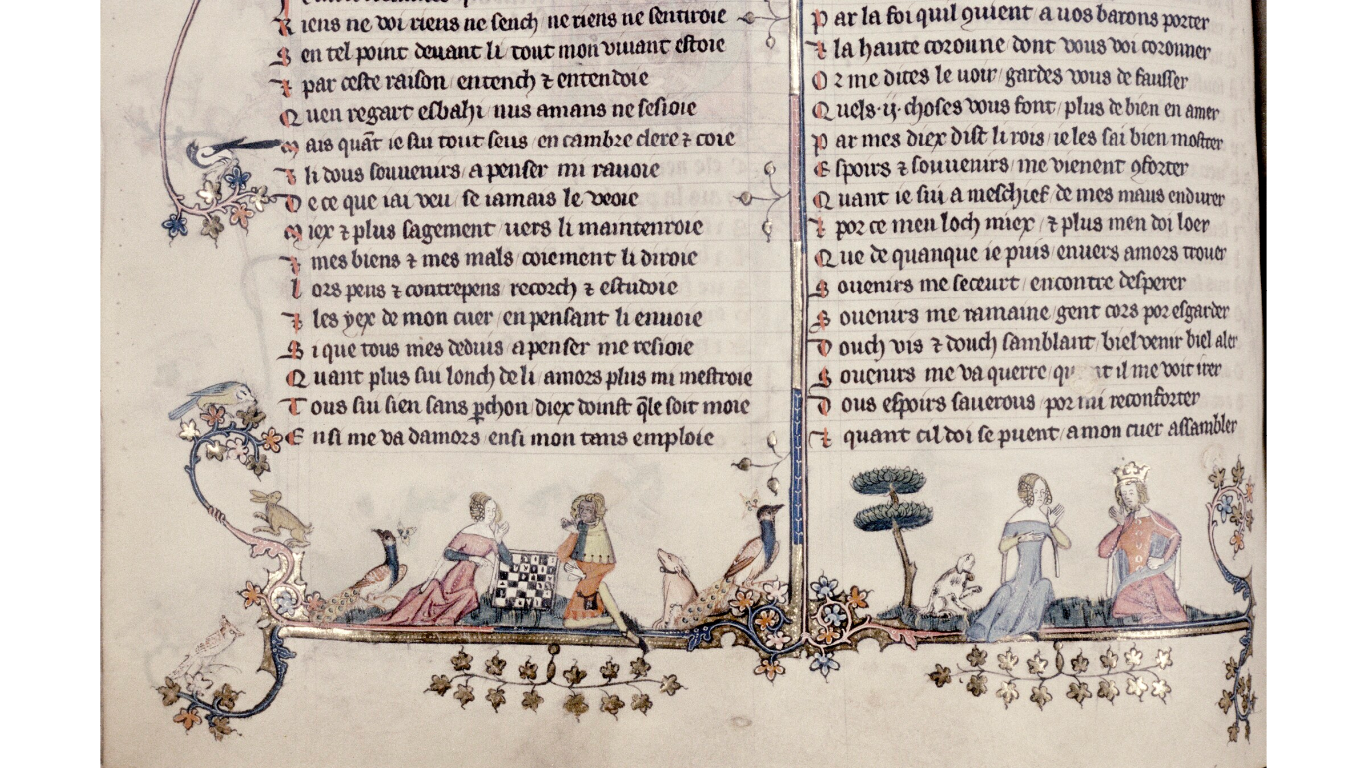 R iens ne voi riens ne sench ne riens ne sentiroie
S en tel point deuant li tout mon viuant estoie
⁊ par ceste raison entench ⁊ entendoie
Q uen regart esbahi nus amans ne sesioie
M ais quāt ie sui tout seus en cambre clere ⁊ coie
L i dous souuenirs a penser mi rauoie
D e ce que iai veu se iamais le veoie
M iex ⁊ plus sagement uers li maintenroie
⁊ mes biens ⁊ mes mals coiement li diroie
L ors pens ⁊ contrepens recorch ⁊ estudoie
⁊ les yex de mon cuer en pensant li enuoie
S i que tous mes deduis a penser me resioie
Q uant plus sui lonch de li amors plus mi mestroie
T ous sui sien sans ꝑchon diex doinst q̄le soit moie
E nsi me va damors ensi mon tans emploie
P ar la foi quil ꝯuient a uos barons porter
⁊ la haute coronne dont vous voi coronner
O r me dites le uoir gardes vous de fausser
Q uels .ij. choses vous font plus de bien en amer
P ar mes diex dist li rois ie les sai bien mostrer
E spoirs ⁊ souuenirs me vienent ꝯforter
Q uant ie sui a meschief de mes maus endurer
⁊ por ce men loch miex ⁊ plus men doi loer
Q ue de quanque ie puis enuers amors trouer
S ouenirs me seceurt encontre desperer
S ouenirs me ramaine gent cors por esgarder
D ouch vis ⁊ douch samblant biel venir biel aler
S ouenirs me va querre il me voit irer
D ous espoirs sauerous por mi reconforter
⁊ quant cil doi se pueent a mon cuer assambler